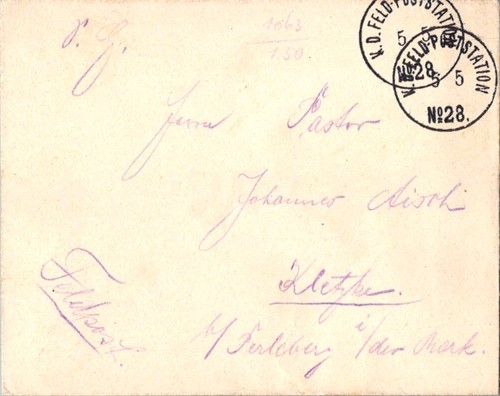 K. D. FELD-POSTSTATION
5 5
№28.
K. D. FELD-POSTSTATION
5 5
№28.
1063
150
Herrn Pastor
Johannes Aisch
Kletzke.
b/Perleberg i/der Mark.
Feldpost.